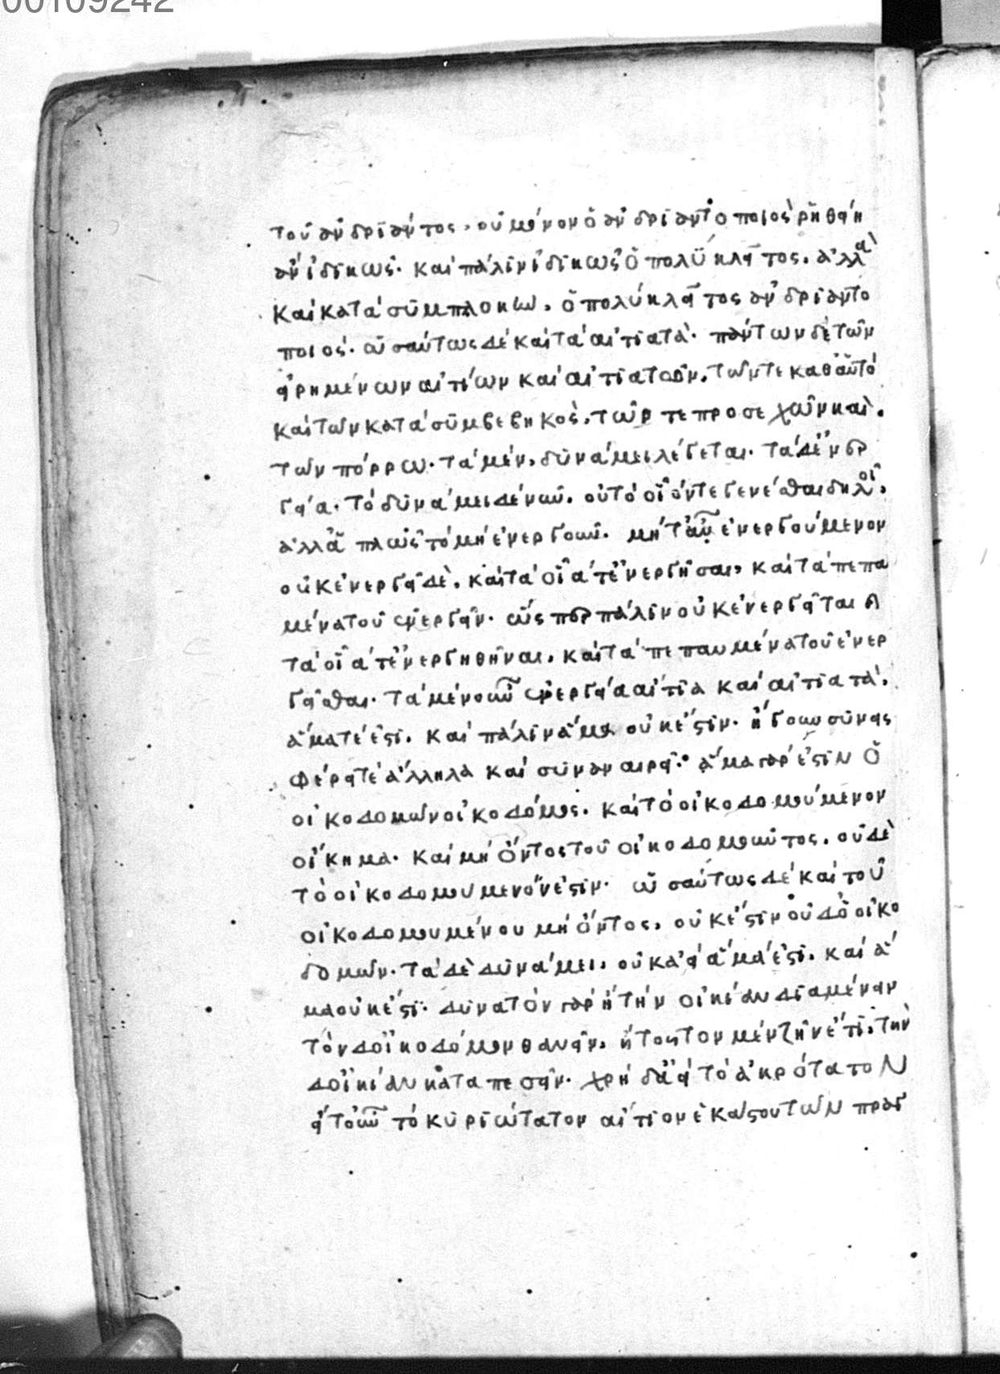 00109242
τοῦ ἀνδριάντος. οὐ μόνον ὁ ἀνδριαντοποιὸς ῥηθείη
ἂν ἰδίκῶς. καὶ πάλιν ἰδικῶς ὁ πολύκλητος. ἀλλὰ
καὶ κατὰ συμπλοκὴν, ὁ πολύκλητος ἀνδριαντο
ποιός. ὡσαύτως δὲ καὶ τὰ αἰτιατά. πάντων δὲ τῶν
εἰρημένων αἰτίων καὶ αἰτιατῶν, τῶν τε καθαυτό
καὶ τῶν κατὰ συμβεβηκὸς, τῶν τε προσεχῶν καὶ
τῶν πόρρω. τὰ μὲν, δυνάμει λέγεται. τὰ δὲ ἐνερ
γείᾳ. τὸ δυνάμει δὲ νῦν, οὐ τὸ οἷόν τε γενέσθαι δηλοῖ,
ἀλλὰ ἁπλῶς τὸ μὴ ἐνεργοῦν. μήτ' αὖ ἐνεργούμενον
οὐκ ἐνεργεῖ δὲ, καὶ τὰ οἷά τε ἐνεργῆσαι, καὶ τὰ πεπαυ
μένα τοῦ ἐνεργεῖν. ὥσπερ πάλιν οὐκ ἐνεργεῖται
τὰ οἷά τε ἐνεργηθῆναι, καὶ τὰ πεπαυμένα τοῦ ἐνερ
γεῖσθαι. τὰ μὲν οὖν ἐνεργείᾳ αἴτια καὶ αἰτιατὰ,
ἅμα τέ ἐστι, καὶ πάλιν ἅμα οὐκ ἔστιν. ἤγουν συνεισ
φέρει τὲ ἄλληλα καὶ συναναιρεῖ. ἅμα γάρ ἐστιν ὁ
οἰκοδομῶν οἰκοδόμος, καὶ τὸ οἰκοδομούμενον
οἴκημα. καὶ μὴ ὄντος τοῦ οἰκοδομοῦντος, οὐδὲ
τὸ οἰκοδομούμενόν ἐστιν. ὡσαύτως δὲ καὶ τοῦ
οἰκοδομουμένου μὴ ὄντος, οὐκ ἔστιν οὐδ' ὁ οἰκο
δομῶν. τὰ δὲ δυνάμει, οὐκ ἀεὶ ἅμά ἐστι, καὶ ἅ
μα οὐκ ἔστι. δυνατὸν γὰρ ἢ τὴν οἰκίαν διαμένειν
τὸν δ' οἰκοδόμον θανεῖν, ἢ τοῦτον μὲν ζῆν ἔτι, τὴν
δ' οἰκίαν καταπεσεῖν. χρὴ δ' ἀεὶ τὸ ἀκρότατον
εἴτουν τὸ κυριώτατον αἴτιον ἑκάστου τῶν πραγ